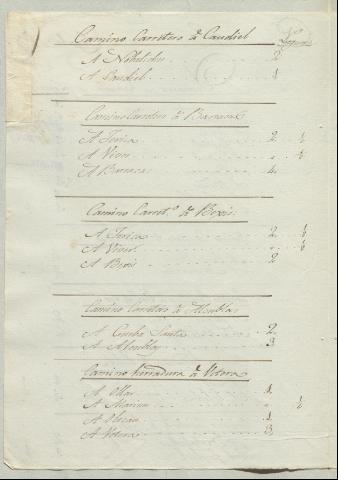 Camino Carretero á Caudiel
A Nabal 2
A Caudiel 1
Camino Carretero á Barracas
A Jerica 2 ½
A Viver " ½
A Barracas 4
Camino Carret.º á Bexis
A Jerica 2 ½
A Viver " ½
A Bexis 2
Camino Carretero á Alcublas
A Cueba Santa 2
A Alcublas 3
Camino herradura á Vetera
A Ollas 1
A Marines " ½
A Olocau 1
A Vetera 3